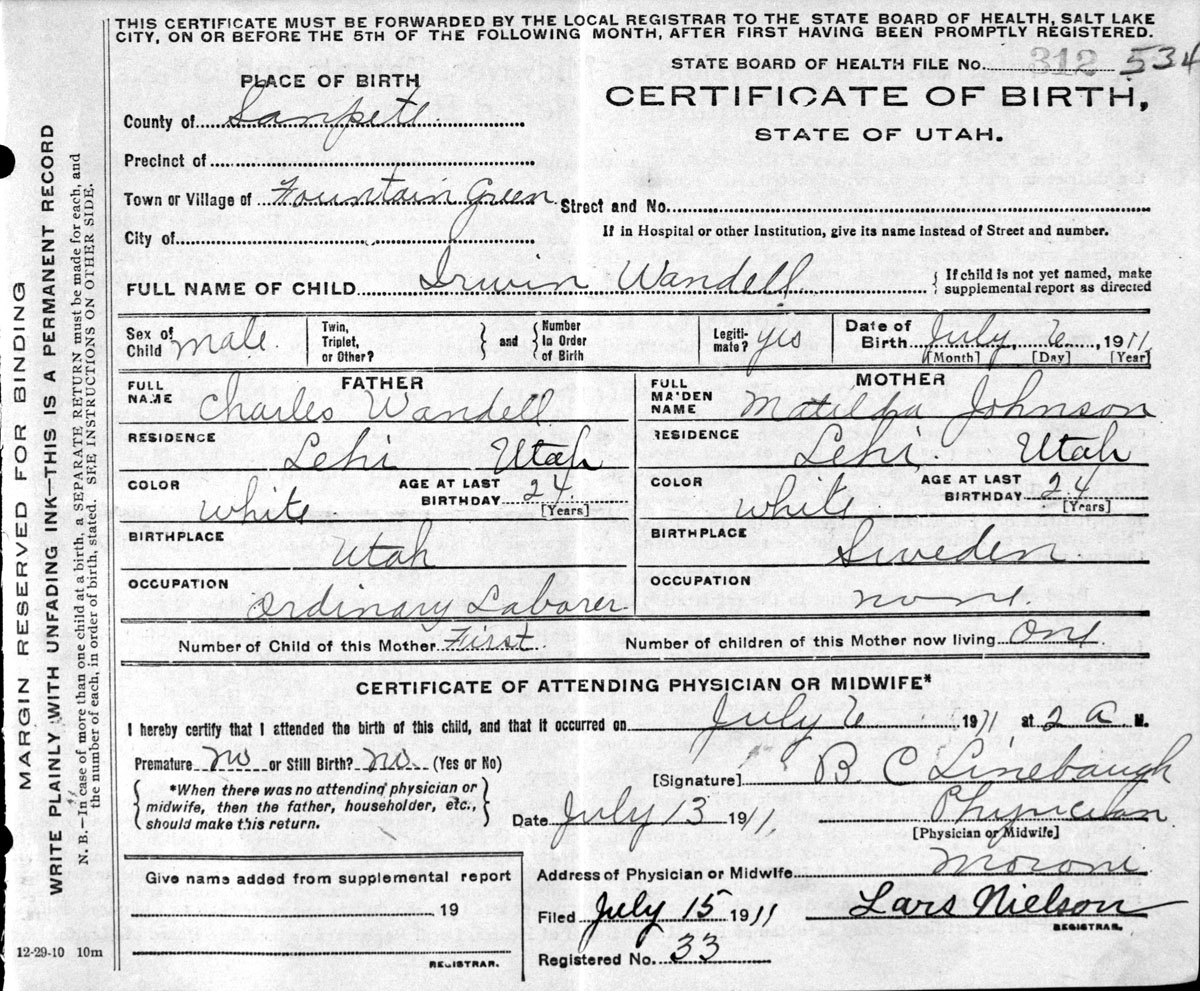 THIS CERTIFICATE MUST BE FORWARDED BY THE LOCAL REGISTRAR TO THE STATE BOARD OF HEALTH, SALT LAKE
CITY, ON OR BEFORE THE 5TH OF THE FOLLOWING MONTH, AFTER FIRST HAVING BEEN PROMPTLY REGISTERED.
STATE BOARD OF HEALTH FILE No. 312 534
PLACE OF BIRTH
CERTIFICATE OF BIRTH,
STATE OF UTAH.
County of Sanpete
Precinct of
Town or Village of Fountain Green Street and No.
City of
If in Hospital or other Institution, give its name instead of Street and number.
FULL NAME OF CHILD Irwin Wandell { If child is not yet named, make
supplemental report as directed
Sex of Child male Twin, Triplet, or Other? } and { Number In Order of Birth Legiti- mate? yes Date of Birth July 6, 1911
[Month] [Day] [Year]
FATHER
FULL NAME Charles Wandell
RESIDENCE Lehi Utah
COLOR White AGE AT LAST BIRTHDAY 24 [Years]
BIRTHPLACE Utah
OCCUPATION Ordinary Laborer
MOTHER
FULL MAIDEN NAME Matilda Johnson
RESIDENCE Lehi Utah
COLOR White AGE AT LAST BIRTHDAY 24 [Years]
BIRTHPLACE Sweden
OCCUPATION none.
Number of Child of this Mother First Number of children of this Mother now living One
CERTIFICATE OF ATTENDING PHYSICIAN OR MIDWIFE*
I hereby certify that I attended the birth of this child, and that it occurred on July 6 1911 at 2 a M.
Premature no or Still Birth? no (Yes or No)
[Signature] B. C Linebaugh
{ *When there was no attending physician or
midwife, then the father, householder, etc.,
should make this return. }
Date July 13 1911 Physician
[Physician or Midwife]
Address of Physician or Midwife Moroni
Give name added from supplemental report
19
REGISTRAR.
Filed July 15 1911 Lars Nielson
REGISTRAR.
Registered No. 33
12-29-10 10m
MARGIN RESERVED FOR BINDING
WRITE PLAINLY WITH UNFADING INK—THIS IS A PERMANENT RECORD
N. B.—In case of more than one child at a birth, a SEPARATE RETURN must be made for each, and
the number of each, in order of birth, stated. SEE INSTRUCTIONS ON OTHER SIDE.